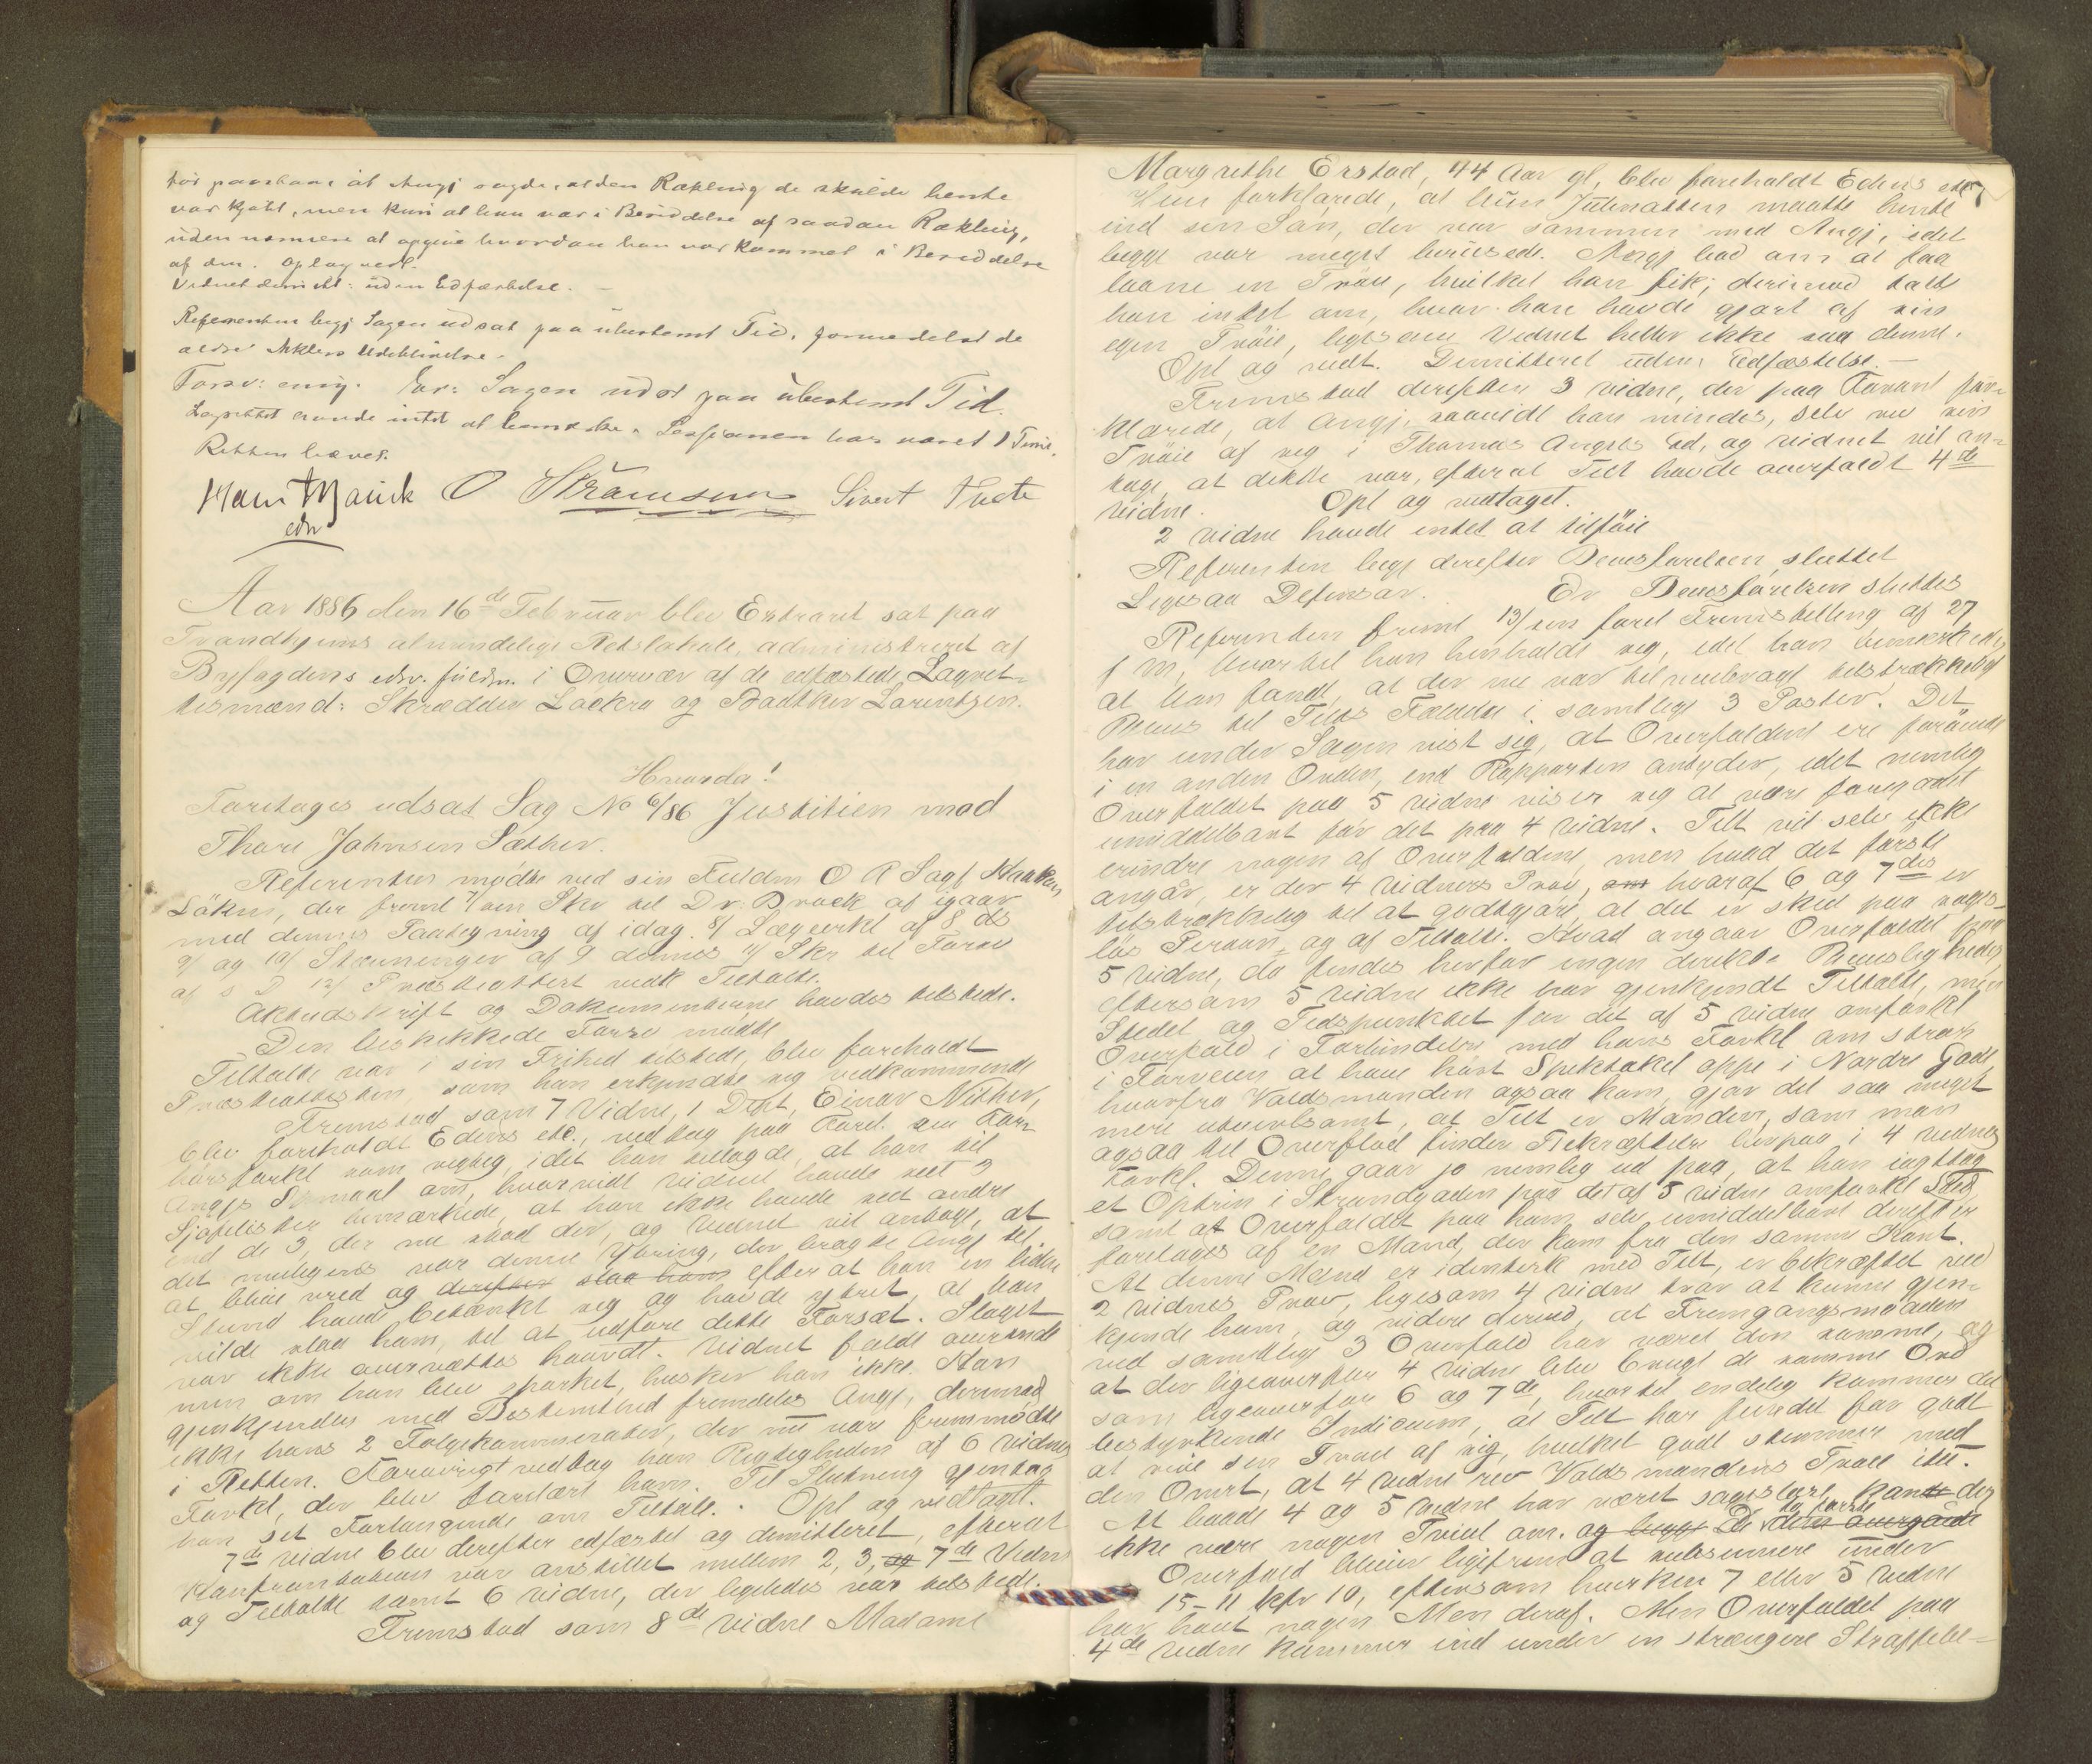 tør paastaa at Angj sagde, at den Rækling de skulde hente
var kjøbt, men kun at han var i Besiddelse af saadan Rækling,
uden nærmere at opgive hvordan han var kommet i Besiddelse
af den. Opl og vedt.
Vidnet demitt: uden Edfæstelse. —
Referenten begj Sagen udsat paa ubestemt Tid, formedelst de
Aktors Udeblivelse.
Forsv: enig. Er: Sagen udst paa ubestemt Tid.
Lagrettet havde intet at bemærke. Sessionen har varet 1 Time.
Retten hævet.
O Strømsem Sivert
Aar 1886 den 16de Februar blev Extraret sat paa
Trondhjems almindelige Retslokale, administreret af
Byfogdens edsv. fuldm. i Overvær af de edfæstede Lagret-
tesmænd: Skrædder Lockra og Baadtker Lorentzen.
Hvorda!
Foretages udsat Sag No 6/86 Justitien mod
Thore Johnsen Sæther.
Referenten mødte ved sin Fuldm O A Sagf Haakon
Løken, der freml 7/ sin Skr til Dr. Brock af igaar
med dennes Paategning af idag. 8/ Lægeerkl af 8 ds
9/ og 10/ Stævninger af 9 dennes 11/ Skr til Forsv
af s D 12/ Præsteattest vedk Tiltalte.
Aktudskrift og Dokumenterne havdes tilstede.
Den beskikkede Forsv mødte
Tiltalte var i sin Frihed tilstede, blev foreholdt
Præsteattesten, som han erkjendte sig vedkommende
Fremstod som 7 Vidne, 1 Dept, Einar Nither,
blev foreholdt Edens etc., vedtog paa Forel. sin For-
hørsforkl som rigtig, idet han tillagde, at han til
Angjs Spørsmaal om, hvorvidt Vidnet havde seet 2
Sjøfolister bemærkede, at han ikke havde seet andre
end de 3, der nu stod der, og Vidnet vil antage, at
det muligens var denne Ytring, der bragte Angj til
at blive vred og derefter slaa ham efterat han en liden
Stund havde betænkt sig og havde ytret, at han
vilde slaa ham, til at udføre dette Forsæt. Slaget
var ikke overvættes haardt. Vidnet faldt overende
men om han blev sparket, husker han ikke. Han
gjenkjender med Bestemthed fremdeles Angj, derimod
ikke hans 2 Følgekammerater, der nu var fremmødte
i Retten. Forøvrigt vedtog han Rigtigheden af 6 Vidnes
Forkl, der blev forelæst ham. Til Slutning gjentog
han sit Forlangende om Tiltale. Opl og vedtaget.
7de Vidne blev derefter edfæstet og dimitteret, efterat
Konfrontation var anstillet mellem 2, 3, og 7de Vidne
og Tiltalte samt 6 Vidne, der ligeledes var tilstede.
Fremstod som 8de Vidne Madame
Margrethe Erstad, 44 Aar gl, blev foreholdt Edens etc
Hun forklarede, at hun Julenatten maatte hente
ind sin Søn, der var sammen med Angj, idet
begge var meget berusede. Angj bad om at faa
laane en Trøie, hvilket han fik; derimod talte
han intet om, hvor han havde gjort af sin
egen Trøie, ligesom Vidnet heller ikke saa denne.
Opl og vedt. Dimitteret uden Edfæstelse. —
Fremstod derefter 3 Vidne, der paa Foranl for-
klarede, at Angj, saavidt han mindes, selv rev sin
Trøie af sig i Thomas Angels Gd, og Vidnet vil an-
tage, at dette var, efterat Tilt havde overfaldt 4de
Vidne. Opl og vedtaget.
2 Vidne havde intet at tilføie
Referenten begj derefter Bevisførelsen sluttet
Ligesaa Defensor. Er Bevisførelsen sluttes
Referenten freml 13/ sin forel Fremstilling af 27
f m, hvortil han henholdt sig, idet han bemærkede,
at han fandt, at der nu var tilveiebragt tilstrækkeligt
Bevis til Tilts Fældelse i samtlige 3 Poster. Det
har under Sagen vist sig, at Overfaldene ere forøvede
i en anden Orden, end Rapporten antyder, idet nemlig
Overfaldet paa 5 Vidne viser sig at være foregaaet
umiddelbart før det paa 4 Vidne. Tilt vil selv ikke
erindre nogen af Overfaldene, men hvad det første
angaar, er der 4 Vidners Prov, om hvoraf 6 og 7des er
tilstrækkelig til at godtgjøre, at det er sked paa sages-
løs Person og af Tiltalte. Hvad angaar Overfaldet paa
5 Vidne, da findes herfor ingen direkte Bevisligheder,
eftersom 5 Vidne ikke har gjenkjendt Tiltalte, men
Stedet og Tidspunktet for det af 5 Vidne omforkl
Overfald i Forbindelse med hans Forkl om strax
i Forveien at have hørt Spektakel oppe i Nordre Gade,
hvorfra Voldsmanden ogsaa kom, gjør det saa meget
mere utvivlsomt, at Tilt er Manden, som man
ogsaa til Overflod finder Bekræftelse herpaa i 4 Vidnes
Forkl. Denne gaar jo nemlig ud paa, at han iagttog
et Optrin i Strandgaden paa det af 5 Vidne omforkl Sted,
samt at Overfaldet paa ham selv umiddelbart derefter
foretages af en Mand, der kom fra den samme Kant.
At denne Mand er identisk med Tilt, er bekræftet ved
2 Vidnes Prov, ligesom 4 Vidne tror at kunne gjen-
kjende ham, og videre derved, at Fremgangsmaaden
ved samtlige 3 Overfald har været den samme, og
at der ligeoverfor 4 Vidne blev brugt de samme Ord
som ligeoverfor 6 og 7de, hvortil endelig kommer det
bestyrkende Indicium, at Tilt har fundet for godt
at rive sin Trøie af sig, hvilket godt stemmer med
den Omst, at 4 Vidne rev Voldsmandens Trøie itu.
At baade 4 og 5 Vidne har været sagesløse, kan der
ikke være nogen Tvivl om. og begge De to første
Overfald bliver ligefrem at subsumere under
15–11 kfr 10, eftersom hverken 7 eller 5 Vidne
har havt nogen Men deraf. Men Overfaldet paa
4de Vidne kommer ind under en strængere Straffebe-